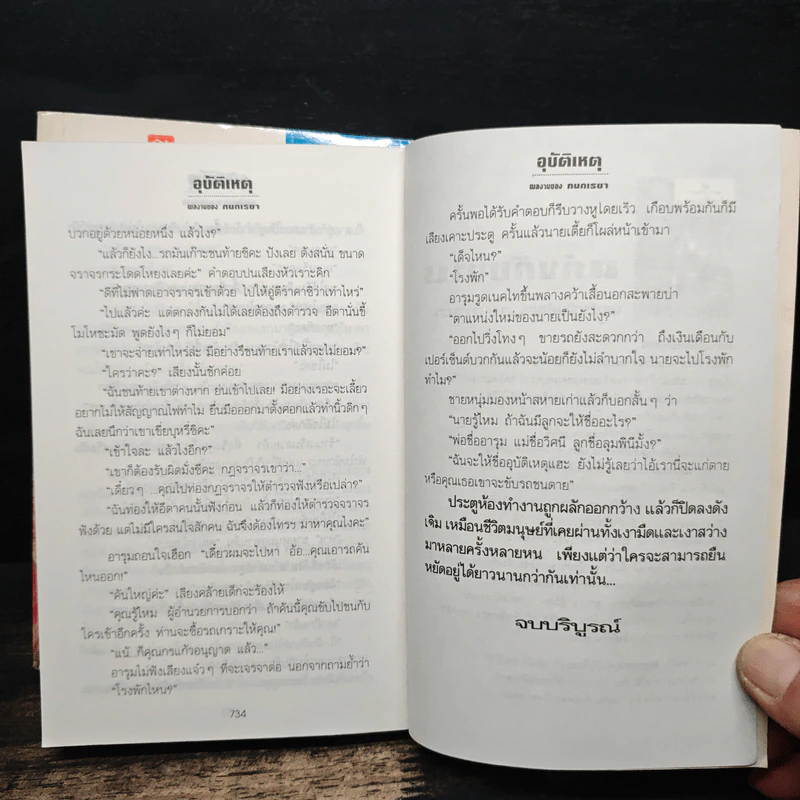 อุบัติเหตุ
ผลงานของ กนกเรขา
บวกอยู่ด้วยหน่อยหนึ่ง แล้วไง?”
“แล้วก็ยังไง...รถมันเก๊าะชนท้ายซิคะ ปังเลย ดังสนั่น ขนาด
จราจรกระโดดโหยงเลยค่ะ” คำตอบปนเสียงหัวเราะคิก
“ดีที่ไม่ฟาดเอาจราจรเข้าด้วย ไปให้อู่ตีราคาซิว่าเท่าไหร่”
“ไปแล้วค่ะ แต่ตกลงกันไม่ได้เลยต้องถึงตำรวจ อีตานั่นขี้
โมโหชะมัด พูดยังไงๆ ก็ไม่ยอม”
“เขาจะจ่ายเท่าไหร่ล่ะ มีอย่างรึชนท้ายเราแล้วจะไม่ยอม?”
“ใครว่าคะ?” เสียงนั้นชักค่อย
“ฉันชนท้ายเขาต่างหาก ย่นเข้าไปเลย! มีอย่างเรอะจะเลี้ยว
อยากไม่ให้สัญญาณไฟทำไม ยื่นมือออกมาตั้งศอกแล้วทำนิ้วดิกๆ
ฉันเลยนึกว่าเขาเขี่ยบุหรี่ซิคะ”
“เข้าใจละ แล้วไงอีก?”
“เขาก็ต้องรับผิดมั่งซิคะ กฎจราจรเขาว่า...”
“เดี๋ยวๆ ...คุณไปท่องกฎจราจรให้ตำรวจฟังหรือเปล่า?”
“ฉันท่องให้อีตาคนนั้นฟังก่อน แล้วก็ท่องให้ตำรวจจราจร
ฟังด้วย แต่ไม่มีใครสนใจสักคน ฉันจึงต้องโทรฯ มาหาคุณไงคะ”
อารุมถอนใจเฮือก “เดี๋ยวผมจะไปหา อ้อ...คุณเอารถคัน
ไหนออก!”
“คันใหญ่ค่ะ” เสียงคล้ายเด็กจะร้องไห้
“คุณรู้ไหม ผู้อำนวยการบอกว่า ถ้าคันนี้คุณขับไปชนกับ
ใครเข้าอีกครั้ง ท่านจะซื้อรถเกราะให้คุณ!”
“แน้ ก็คุณกรแก้วอนุญาต แล้ว...”
อารุมไม่ฟังเสียงแจ๋วๆ ที่จะเจรจาต่อ นอกจากถามย้ำว่า
“โรงพักไหน?”
734
อุบัติเหตุ
ผลงานของ กนกเรขา
ครั้นพอได้รับคำตอบก็รีบวางหูโดยเร็ว เกือบพร้อมกันก็มี
เสียงเคาะประตู ครั้นแล้วนายเตี้ยก็โผล่หน้าเข้ามา
“เด็จไหน?”
“โรงพัก”
อารุมรูดเนคไทขึ้นพลางคว้าเสื้อนอกสะพายบ่า
“ตาแหน่งใหม่ของนายเป็นยังไง?”
“ออกไปวิ่งโทงๆ ขายรถยังสะดวกกว่า ถึงเงินเดือนกับ
เปอร์เซ็นต์บวกกันแล้วจะน้อยก็ยังไม่ลำบากใจ นายจะไปโรงพัก
ทำไม?”
ชายหนุ่มมองหน้าสหายเก่าแล้วก็บอกสั้นๆ ว่า
“นายรู้ไหม ถ้าฉันมีลูกจะให้ชื่ออะไร?”
“พ่อชื่ออารุม แม่ชื่อวิศนี ลูกชื่อลุมพินีมั้ง?”
“ฉันจะให้ชื่ออุบัติเหตุแฮะ ยังไม่รู้เลยว่าไอ้เรานี่จะแก่ตาย
หรือคุณเธอเขาจะขับรถชนตาย”
ประตูห้องทำงานถูกผลักออกกว้าง แล้วก็ปิดลงดัง
เดิม เหมือนชีวิตมนุษย์ที่เคยผ่านทั้งเงามืดและเงาสว่าง
มาหลายครั้งหลายหน เพียงแต่ว่าใครจะสามารถยืน
หยัดอยู่ได้ยาวนานกว่ากันเท่านั้น...
จบบริบูรณ์